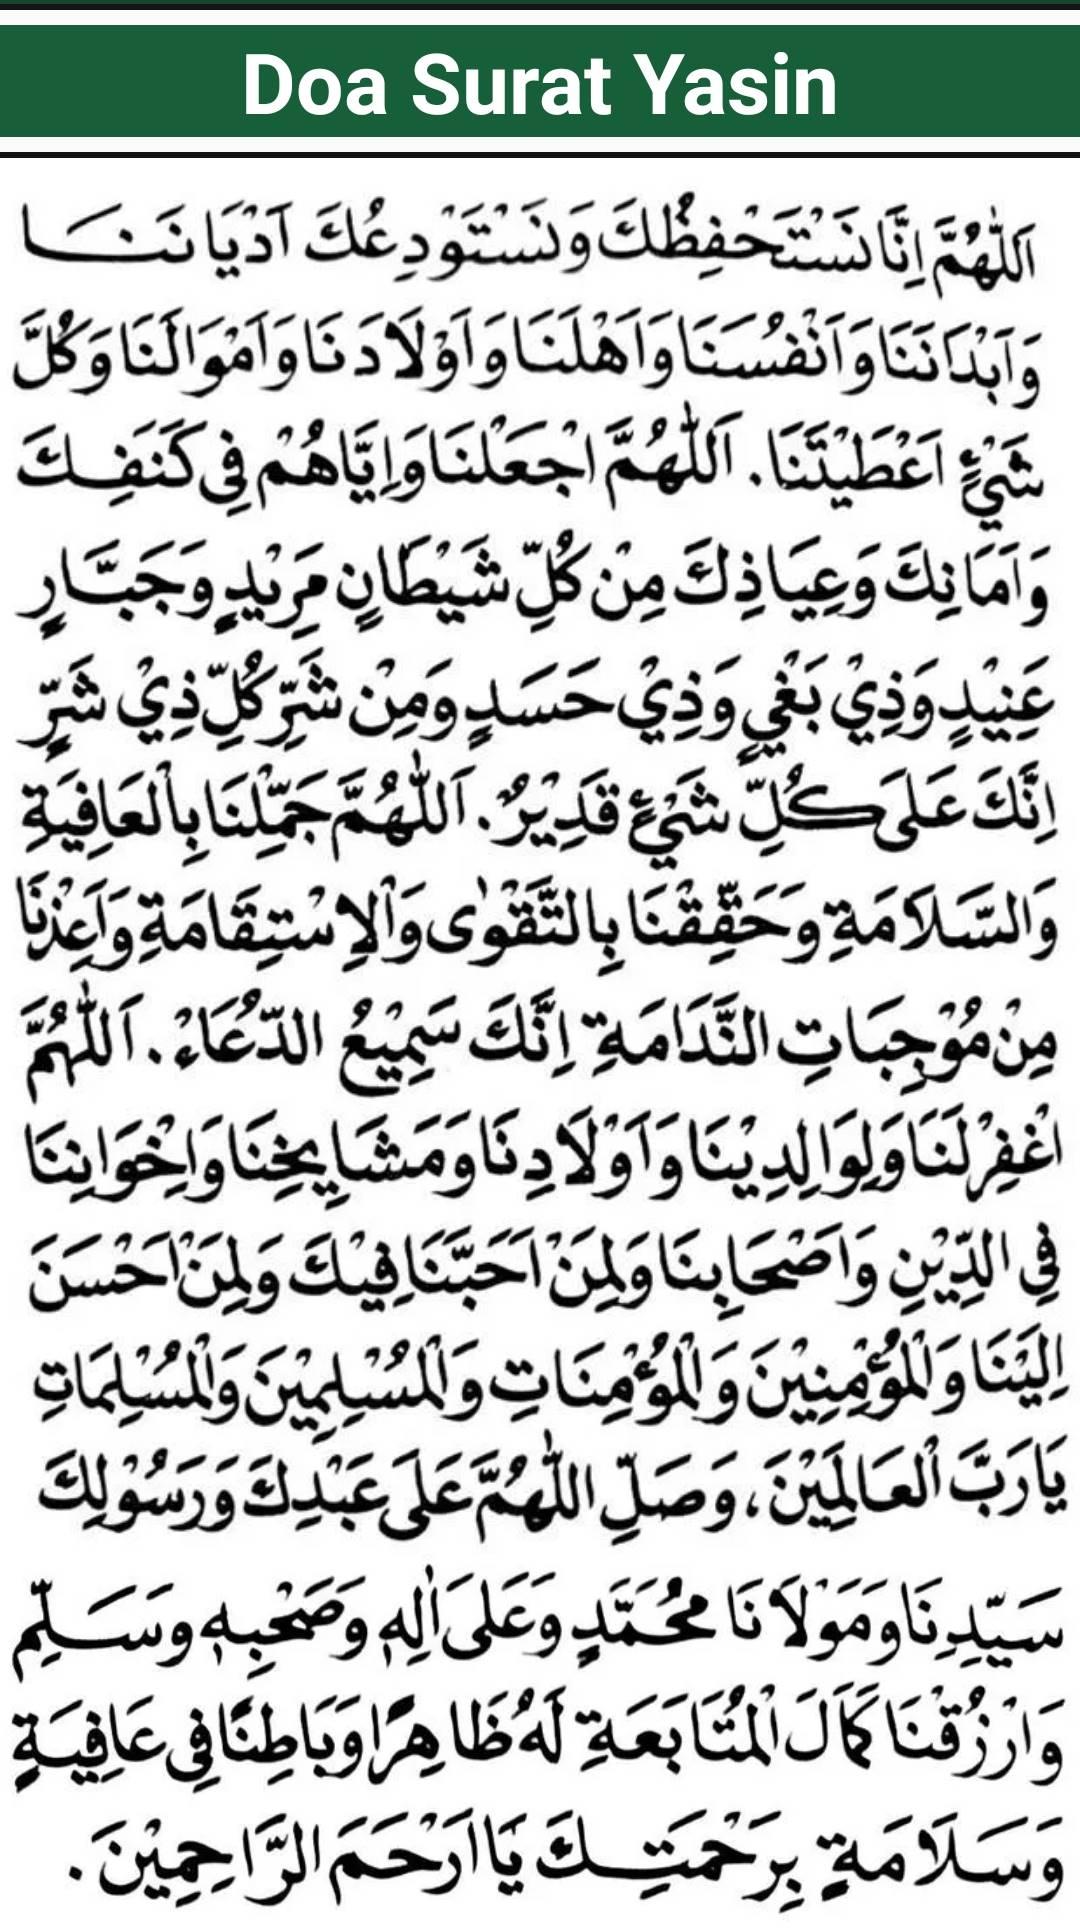 Doa Surat Yasin
اَللّٰهُمَّ اِنَّا نَسْتَحْفِظُكَ وَنَسْتَوْدِعُكَ اَدْيَانَنَا
وَاَبْدَانَنَا وَاَنْفُسَنَا وَاَهْلَنَا وَاَوْلَادَنَا وَاَمْوَالَنَا وَكُلَّ
شَيْءٍ اَعْطَيْتَنَا. اَللّٰهُمَّ اجْعَلْنَا وَاِيَّاهُمْ فِي كَنَفِكَ
وَاَمَانِكَ وَعِيَاذِكَ مِنْ كُلِّ شَيْطَانٍ مَرِيْدٍ وَجَبَّارٍ
عَنِيْدٍ وَذِيْ بَغْيٍ وَذِيْ حَسَدٍ وَمِنْ شَرِّ كُلِّ ذِيْ شَرٍّ
اِنَّكَ عَلَى كُلِّ شَيْءٍ قَدِيْرٌ. اَللّٰهُمَّ جَمِّلْنَا بِالْعَافِيَةِ
وَالسَّلَامَةِ وَحَقِّقْنَا بِالتَّقْوٰى وَالْاِسْتِقَامَةِ وَاَعِذْنَا
مِنْ مُوْجِبَاتِ النَّدَامَةِ اِنَّكَ سَمِيْعُ الدُّعَاءِ. اَللّٰهُمَّ
اغْفِرْ لَنَا وَلِوَالِدِيْنَا وَاَوْلَادِنَا وَمَشَايِخِنَا وَاِخْوَانِنَا
فِي الدِّيْنِ وَاَصْحَابِنَا وَلِمَنْ اَحَبَّنَا فِيْكَ وَلِمَنْ اَحْسَنَ
اِلَيْنَا وَالْمُؤْمِنِيْنَ وَالْمُؤْمِنَاتِ وَالْمُسْلِمِيْنَ وَالْمُسْلِمَاتِ
يَارَبَّ الْعَالَمِيْنَ، وَصَلِّ اللّٰهُمَّ عَلَى عَبْدِكَ وَرَسُوْلِكَ
سَيِّدِنَا وَمَوْلَانَا مُحَمَّدٍ وَعَلَى اٰلِهِ وَصَحْبِهِ وَسَلِّمْ
وَارْزُقْنَا كَمَالَ الْمُتَابَعَةِ لَهُ ظَاهِرًا وَبَاطِنًا فِي عَافِيَةٍ
وَسَلَامَةٍ بِرَحْمَتِكَ يَا اَرْحَمَ الرَّاحِمِيْنَ.